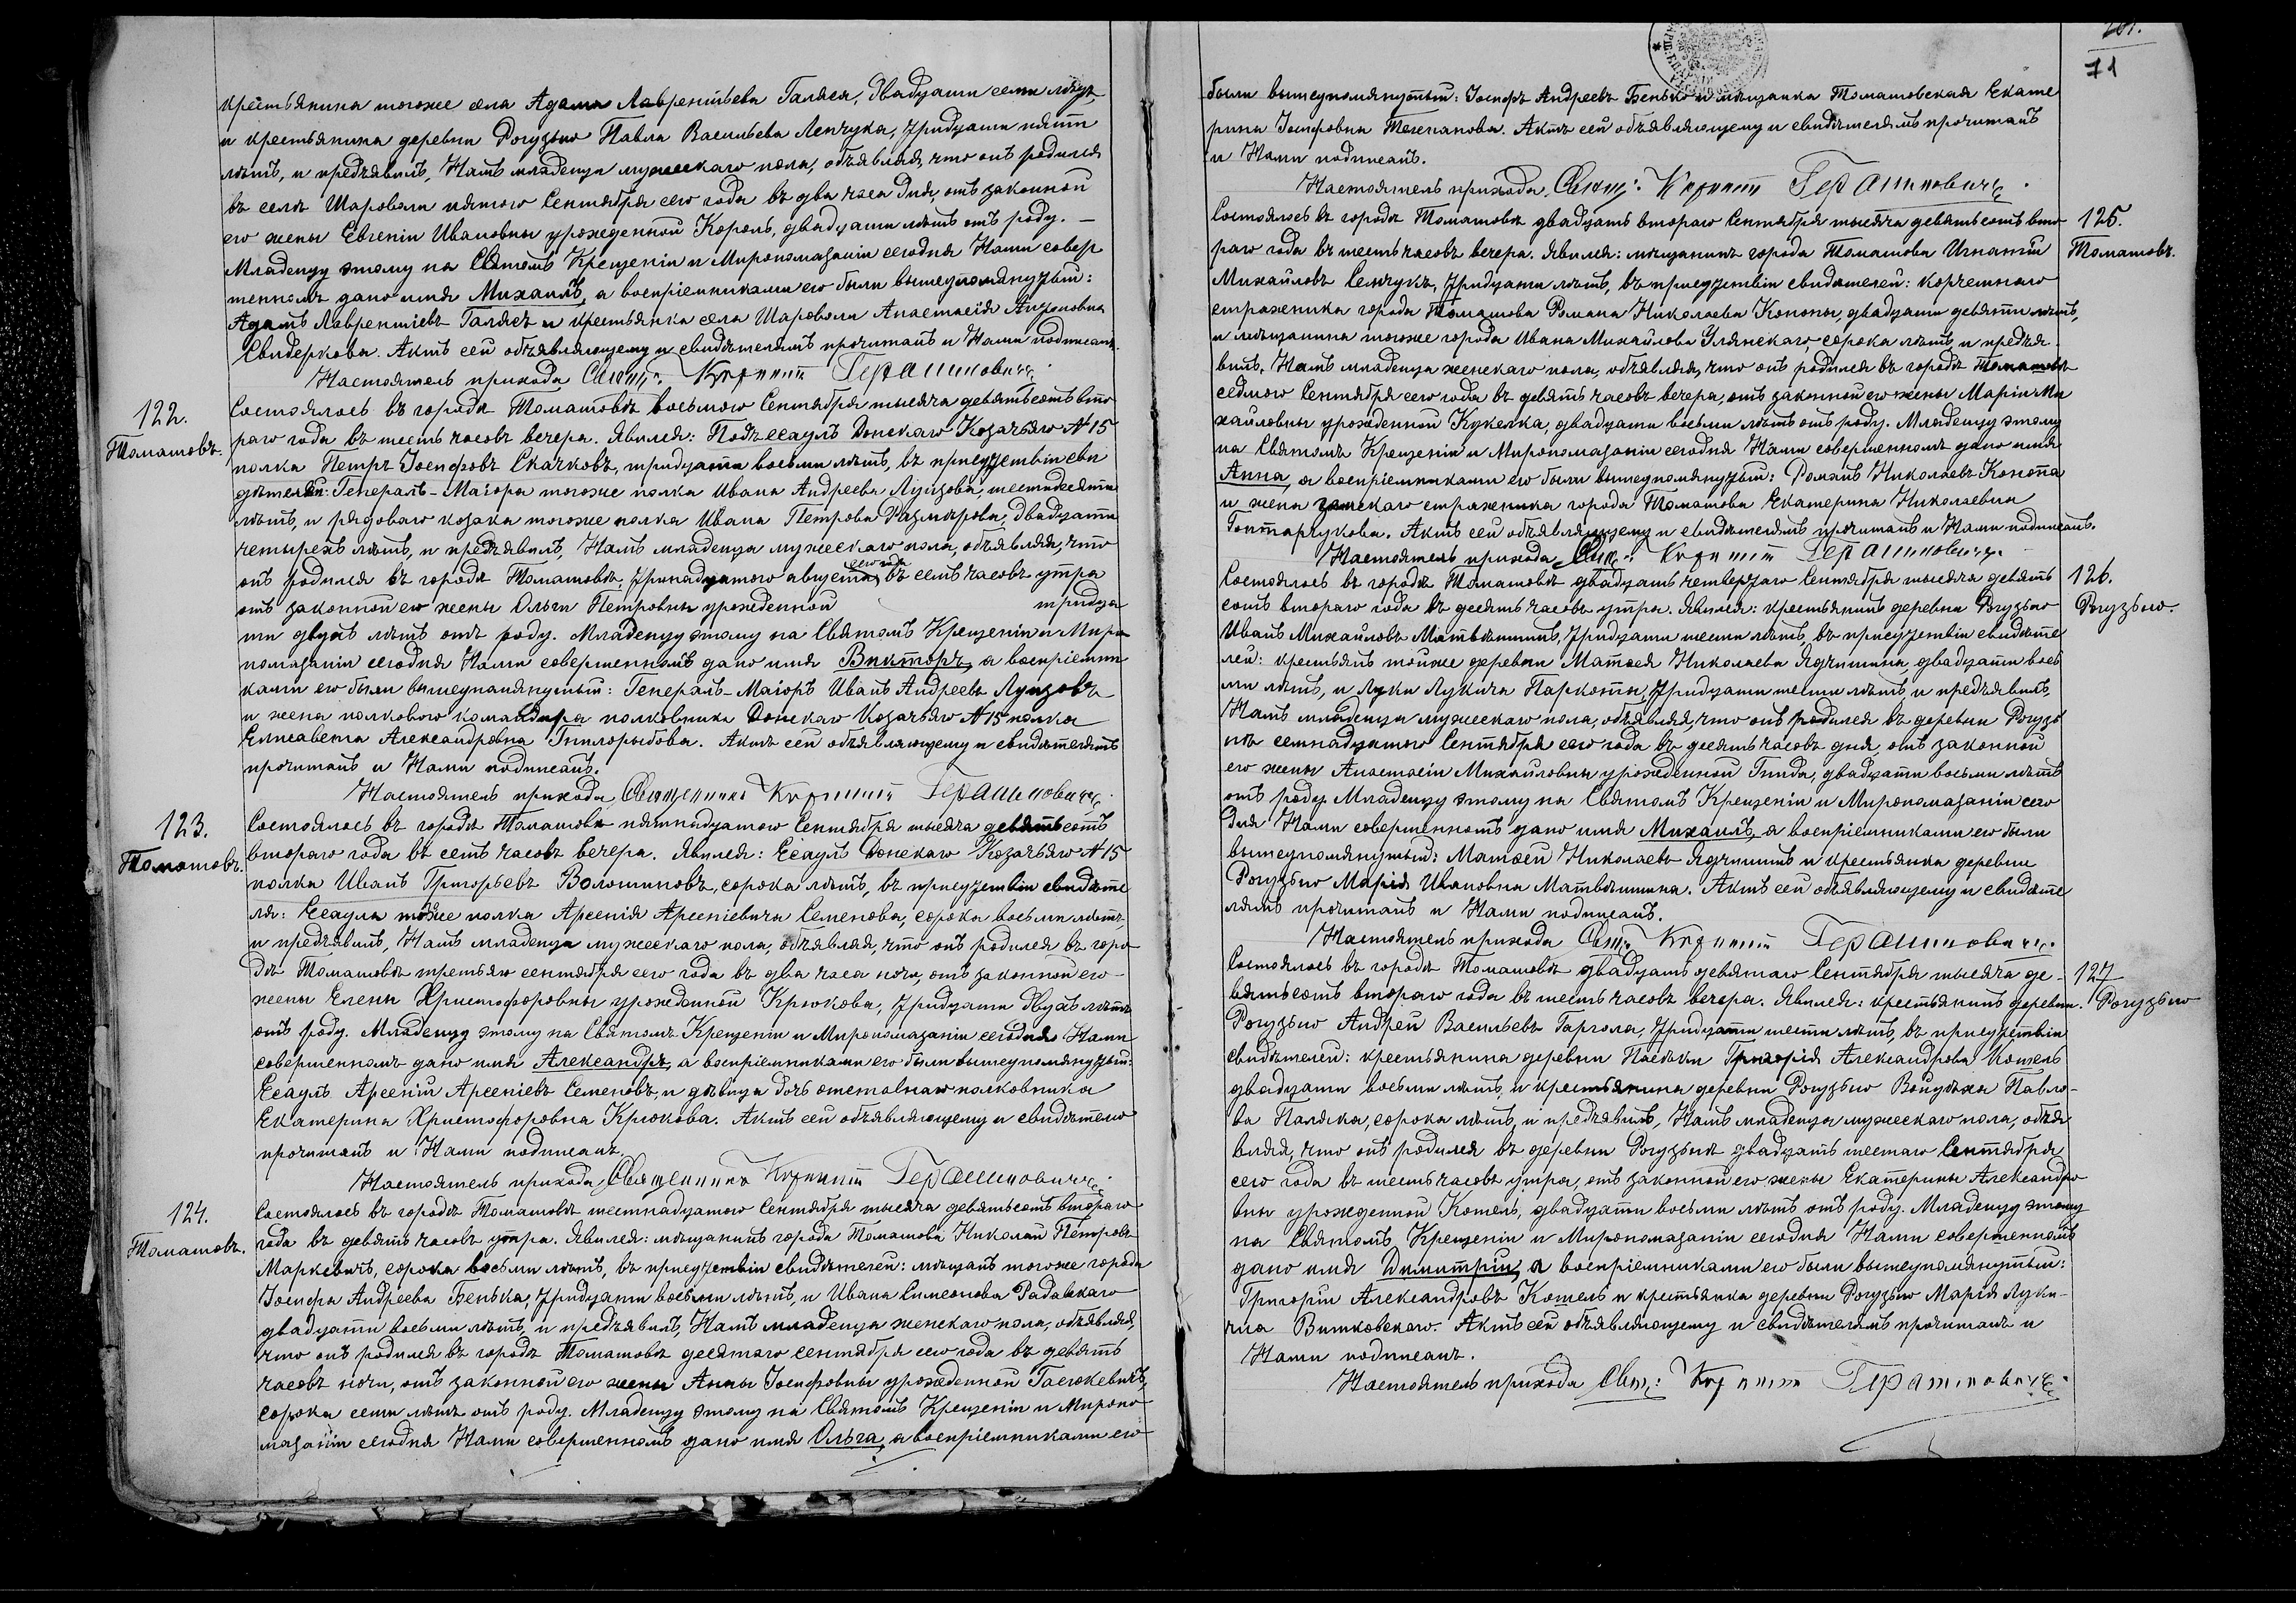 крестьянина тогоже села Адама Лаврентьева Галяса, двадцати семи лѣтъ,
и крестьянина деревни Рогузьно Павла Васильева Ленчука, тридцати пяти
лѣтъ, и предъявилъ Намъ младенца мужескаго пола, объявляя, что онъ родился
въ селѣ Шароволи пятого Сентября сего года въ два часа дня, отъ законной
его жены Евгеніи Ивановны урожденной Король, двадцати лѣтъ отъ роду. —
Младенцу этому на Святомъ Крещеніи и Мѵропомазаніи сегодня Нами совер
шенномъ дано имя Михаилъ, а воспріемниками его были вышеупомянутый:
Адамъ Лаврентіевъ Галясъ и крестьянка села Шароволи Анастасія Антоновна
Свидеркова. Актъ сей объявляющему и свидѣтелямъ прочитанъ и Нами подписанъ.
Настоятель прихода Свящ: Герашиновичъ.
122.
Томашовъ.
Состоялось въ городѣ Томашовѣ восьмого Сентября тысяча девятьсотъ вто
раго года въ шесть часовъ вечера. Явился: Подъесаулъ Донскаго Козачьяго N 15
полка Петръ Іосифовъ Скачковъ, тридцати восьми лѣтъ, въ присутствіи сви
дѣтелей: Генералъ-Маіора тогоже полка Ивана Андреева Лунзова, шестидесяти
лѣтъ, и рядоваго козака тогоже полка Ивана Петрова Казмирова, двадцати
четырехъ лѣтъ, и предъявилъ, Намъ младенца мужескаго пола, объявляя, что
онъ родился въ городѣ Томашовѣ, тринадцатого августа сего года въ семь часовъ утра
отъ законной его жены Ольги Петровны урожденной тридца
ти двухъ лѣтъ отъ роду. Младенцу этому на Святомъ Крещеніи и Мѵро
помазаніи сегодня Нами совершенномъ дано имя Викторъ, а воспріемни
ками его были вышеупомянутый: Генералъ-Маіоръ Иванъ Андреевъ Лунзовъ
и жена полковаго командира полковника Донскаго Козачьяго N 15 полка
Елисавета Александровна Гнилорыбова. Актъ сей объявляющему и свидѣтелямъ
прочитанъ и Нами подписанъ.
Настоятель прихода, Священникъ Герашиновичъ.
123.
Томашовъ.
Состоялось въ городѣ Томашовѣ пятнадцатого Сентября тысяча девятьсотъ
втораго года въ семь часовъ вечера. Явился: Есаулъ Донскаго Козачьяго N 15
полка Иванъ Григорьевъ Волошиновъ, сорока лѣтъ, въ присутствіи свидѣте
ля: Есаула тоже полка Арсенія Арсеніевича Семенова, сорока восьми лѣтъ,
и предъявилъ, Намъ младенца мужескаго пола, объявляя, что онъ родился въ горо
дѣ Томашовѣ третьяго сентября сего года въ два часа ночи, отъ законной его
жены Елены Христофоровны урожденной Крюкова, тридцати двухъ лѣтъ
отъ роду. Младенцу этому на Святомъ Крещеніи и Мѵропомазаніи сегодня Нами
совершенномъ дано имя Александръ, а воспріемниками его были вышеупомянутый:
Есаулъ Арсеній Арсеніевъ Семеновъ, и дѣвица дочь отставнаго полковника
Екатерина Христофоровна Крюкова. Актъ сей объявляющему и свидѣтелю
прочитанъ и Нами подписанъ.
Настоятель прихода, Священникъ Герашиновичъ.
124.
Томашовъ.
Состоялось въ городѣ Томашовѣ шестнадцатого Сентября тысяча девятьсотъ втораго
года въ девять часовъ утра. Явился: мѣщанинъ города Томашова Николай Петровъ
Маркевичъ, сорока восьми лѣтъ, въ присутствіи свидѣтелей: мѣщанъ тогоже города
Іосифа Андреева Бенька, тридцати восьми лѣтъ, и Ивана Симеонова Радавскаго
двадцати восьми лѣтъ, и предъявилъ, Намъ младенца женскаго пола, объявляя,
что онъ родился въ городѣ Томашовѣ десятаго сентября сего года въ девять
часовъ ночи, отъ законной его жены Анны Іосифовны урожденной Гасюкевичъ,
сорока семи лѣтъ отъ роду. Младенцу этому на Святомъ Крещеніи и Мѵропо
мазаніи сегодня Нами совершенномъ дано имя Ольга, а воспріемниками его
71
были вышеупомянутый: Іосифъ Андреевъ Бенько и мѣщанка Томашовская Екате
рина Іосифовна Телепанова. Актъ сей объявляющему и свидѣтелямъ прочитанъ
и Нами подписанъ.
Настоятель прихода, Свящ: Герашиновичъ.
125.
Томашовъ.
Состоялось въ городѣ Томашовѣ двадцать втораго Сентября тысяча девятьсотъ вто
раго года въ шесть часовъ вечера. Явился: мѣщанинъ города Томашова Игнатій
Михайловъ Семчукъ, тридцати лѣтъ, въ присутствіи свидѣтелей: корчемнаго
стражника города Томашова Романа Николаева Конопы, двадцати девяти лѣтъ,
и мѣщанина тогоже города Ивана Михайлова Улянскаго, сорока лѣтъ, и предъя
вилъ, Намъ младенца женскаго пола, объявляя, что онъ родился въ городѣ Томашовѣ
седмого Сентября сего года въ девять часовъ вечера, отъ законной его жены Маріи Ми
хайловны урожденной Кукелка, двадцати восьми лѣтъ отъ роду. Младенцу этому
на Святомъ Крещеніи и Мѵропомазаніи сегодня Нами совершенномъ дано имя
Анна, а воспріемниками его были вышеупомянутый: Романъ Николаевъ Конопа
и жена земскаго стражника города Томашова Екатерина Николаевна
Гонтарчукова. Актъ сей объявляющему и свидѣтелямъ прочитанъ и Нами подписанъ.
Настоятель прихода, Свящ: Герашиновичъ.
126.
Рогузьно.
Состоялось въ городѣ Томашовѣ двадцать четвертаго Сентября тысяча девять
сотъ втораго года въ десять часовъ утра. Явился: крестьянинъ деревни Рогузьно
Иванъ Михайловъ Матвѣишинъ, тридцати шести лѣтъ, въ присутствіи свидѣте
лей: крестьянъ тойже деревни Матѳея Николаева Ядчишина, двадцати вось
ми лѣтъ, и Луки Лукича Паркоты, тридцати шести лѣтъ, и предъявилъ,
Намъ младенца мужескаго пола, объявляя, что онъ родился въ деревни Рогузь
нѣ семнадцатого Сентября сего года въ десять часовъ дня, отъ законной
его жены Анастасіи Михайловны урожденной Гнида, двадцати восьми лѣтъ
отъ роду. Младенцу этому на Святомъ Крещеніи и Мѵропомазаніи сего
дня Нами совершенномъ дано имя Михаилъ, а воспріемниками его были
вышеупомянутый: Матѳей Николаевъ Ядчишинъ и крестьянка деревни
Рогузьно Марія Ивановна Матвѣишина. Актъ сей объявляющему и свидѣте
лямъ прочитанъ и Нами подписанъ.
Настоятель прихода Свящ: Герашиновичъ.
127
Рогузьно
Состоялось въ городѣ Томашовѣ двадцать девятаго Сентября тысяча де-
вятьсотъ втораго года въ шесть часовъ вечера. Явился: крестьянинъ деревни
Рогузьно Андрей Васильевъ Гаргола, тридцати шести лѣтъ, въ присутствіи
свидѣтелей: крестьянина деревни Пасѣки Григорія Александрова Котель
двадцати восьми лѣтъ, и крестьянина деревни Рогузьно Войцѣха Павло-
ва Паляка, сорока лѣтъ, и предъявилъ, Намъ младенца мужескаго пола, объя
вляя, что онъ родился въ деревни Рогузьнѣ двадцать шестаго Сентября
сего года въ шесть часовъ утра, отъ законной его жены Екатерины Александро
вны урожденной Котель, двадцати восьми лѣтъ отъ роду. Младенцу этому
на Святомъ Крещеніи и Мѵропомазаніи сегодня Нами совершенномъ
дано имя Димитрій, а воспріемниками его были вышеупомянутый:
Григорій Александровъ Котель и крестьянка деревни Рогузьно Марія Луки-
чна Витковскаго. Актъ сей объявляющему и свидѣтелямъ прочитанъ и
Нами подписанъ.
Настоятель прихода Свящ: Герашиновичъ.